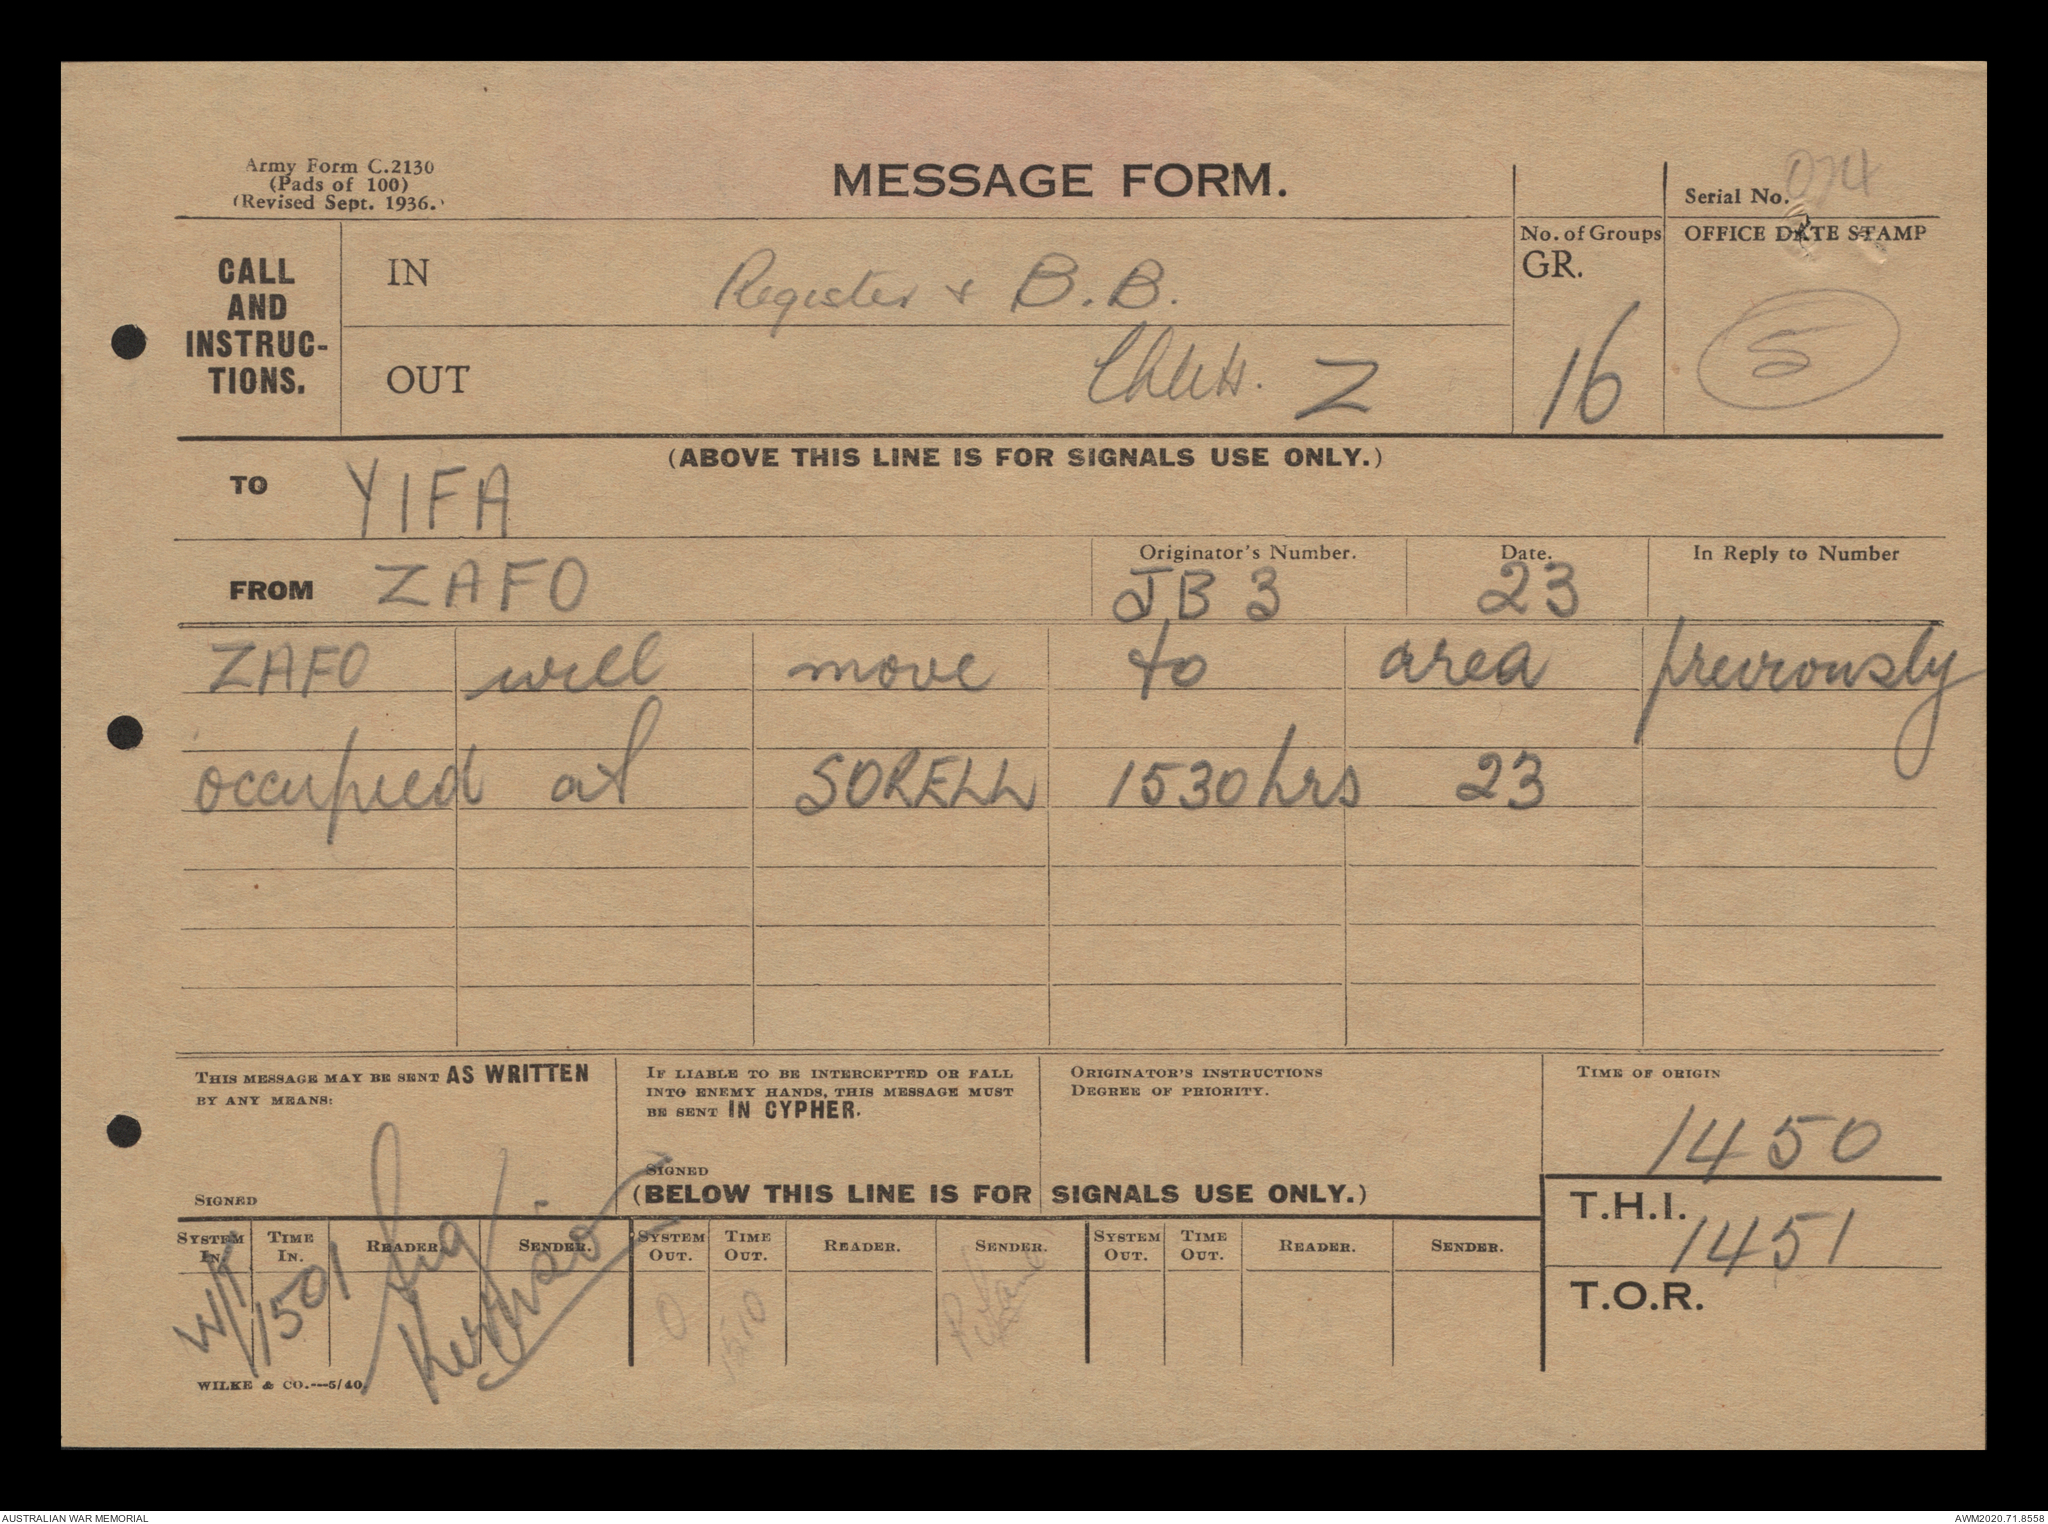 Army Form C.2130
(Pads of 100)
(Revised Sept. 1936.)
MESSAGE FORM.
Serial No.
CALL AND INSTRUC-TIONS.
IN
Register & B.B.
No. of Groups
GR.
16
OFFICE DATE STAMP
5
OUT
Z
(ABOVE THIS LINE IS FOR SIGNALS USE ONLY.)
TO YIFA
FROM ZAFO
Originator's Number.
JB 3
Date.
23
In Reply to Number
ZAFO will move to area previously
occupied at SORELL 1530hrs 23
THIS MESSAGE MAY BE SENT AS WRITTEN
BY ANY MEANS:
SIGNED
IF LIABLE TO BE INTERCEPTED OR FALL
INTO ENEMY HANDS, THIS MESSAGE MUST
BE SENT IN CYPHER.
SIGNED
ORIGINATOR'S INSTRUCTIONS
DEGREE OF PRIORITY.
TIME OF ORIGIN
1450
(BELOW THIS LINE IS FOR SIGNALS USE ONLY.)
T.H.I.
1451
T.O.R.
SYSTEM IN. TIME IN. READER. SENDER. SYSTEM OUT. TIME OUT. READER. SENDER. SYSTEM OUT. TIME OUT. READER. SENDER.
W/T 1501 Sig 0 1510
WILKE & CO.---5/40.
AUSTRALIAN WAR MEMORIAL
AWM2020.71.8558